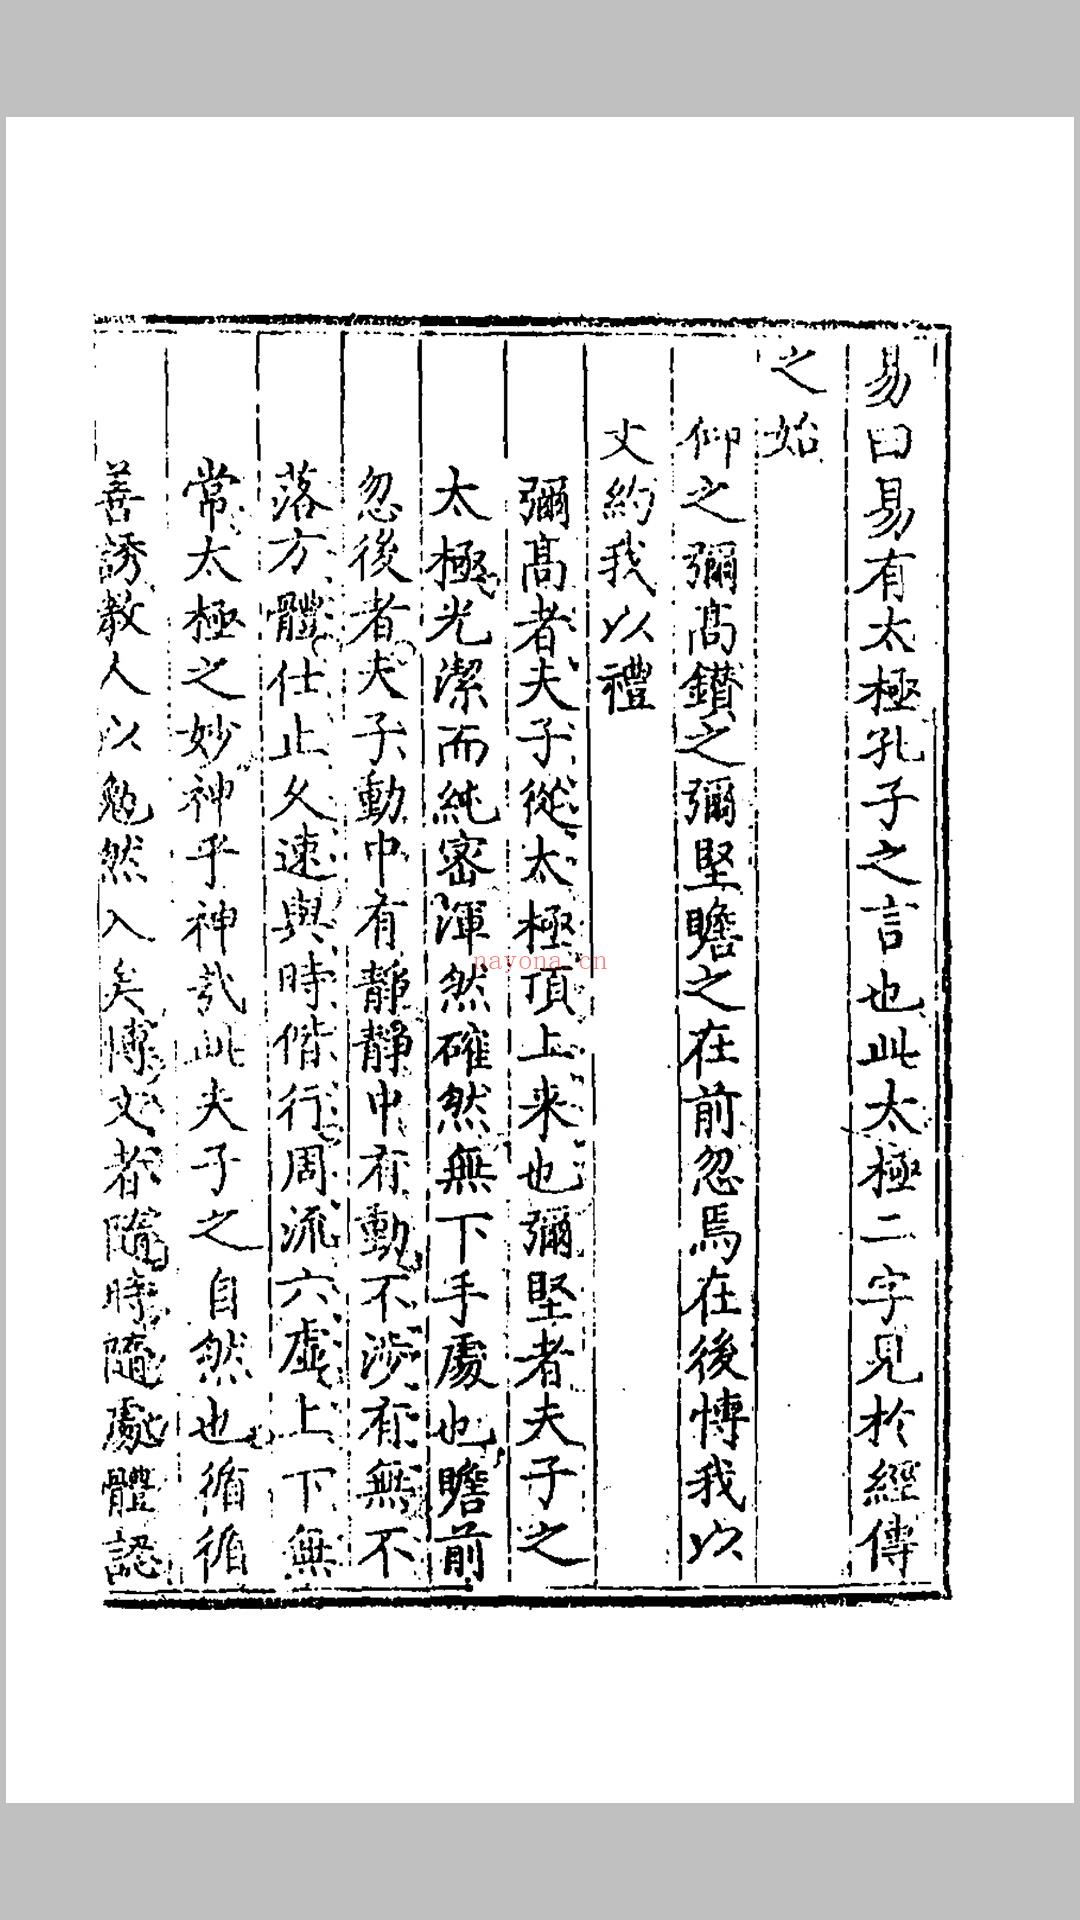 易曰易有太極孔子之言也此太極二字見於經傳
之始
仰之彌髙鑚之彌堅瞻之在前忽焉在後愽我以
文約我以禮
彌髙者夫子從太極頂上来也彌堅者夫子之
太極光潔而純密渾然確然無下手處也瞻前
忽後者夫子動中有靜靜中有動不渉有無不
落方體仕止久速與時偕行周流六虚上下無
常太極之妙神乎神哉此夫子之自然也循循
善誘教人以勉然入矣愽文者隨時隨處體認
nayona.cn